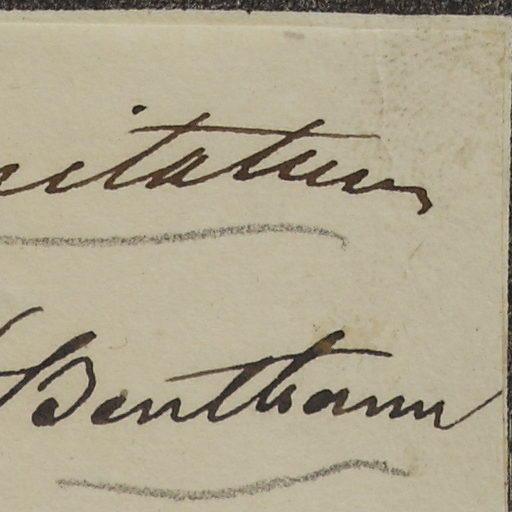 citatum
Bentham